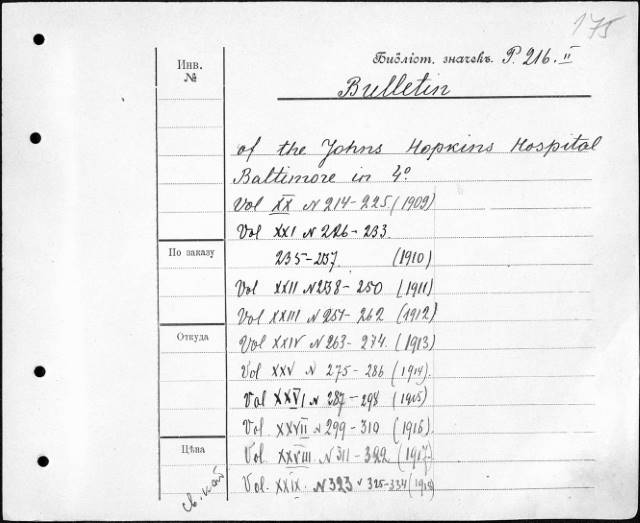 175
Инв.
№
Библіот. значекъ. P. 216. II
Bulletin
of the Johns Hopkins Hospital
Baltimore in 4º
Vol XX N 214-225 (1909)
Vol XXI N 226-233
По заказу
235-237. (1910)
Vol XXII N 238-250 (1911)
Vol XXIII N 251-262 (1912)
Откуда
Vol XXIV N 263-274. (1913)
Vol XXV N 275-286 (1914).
Vol XXVI N 287-298 (1915)
Vol XXVII N 299-310 (1916).
Цѣна
Vol. XXVIII N 311-322 (1917.
Vol. XXIX. N 323 325-334 (1918)
св. кат